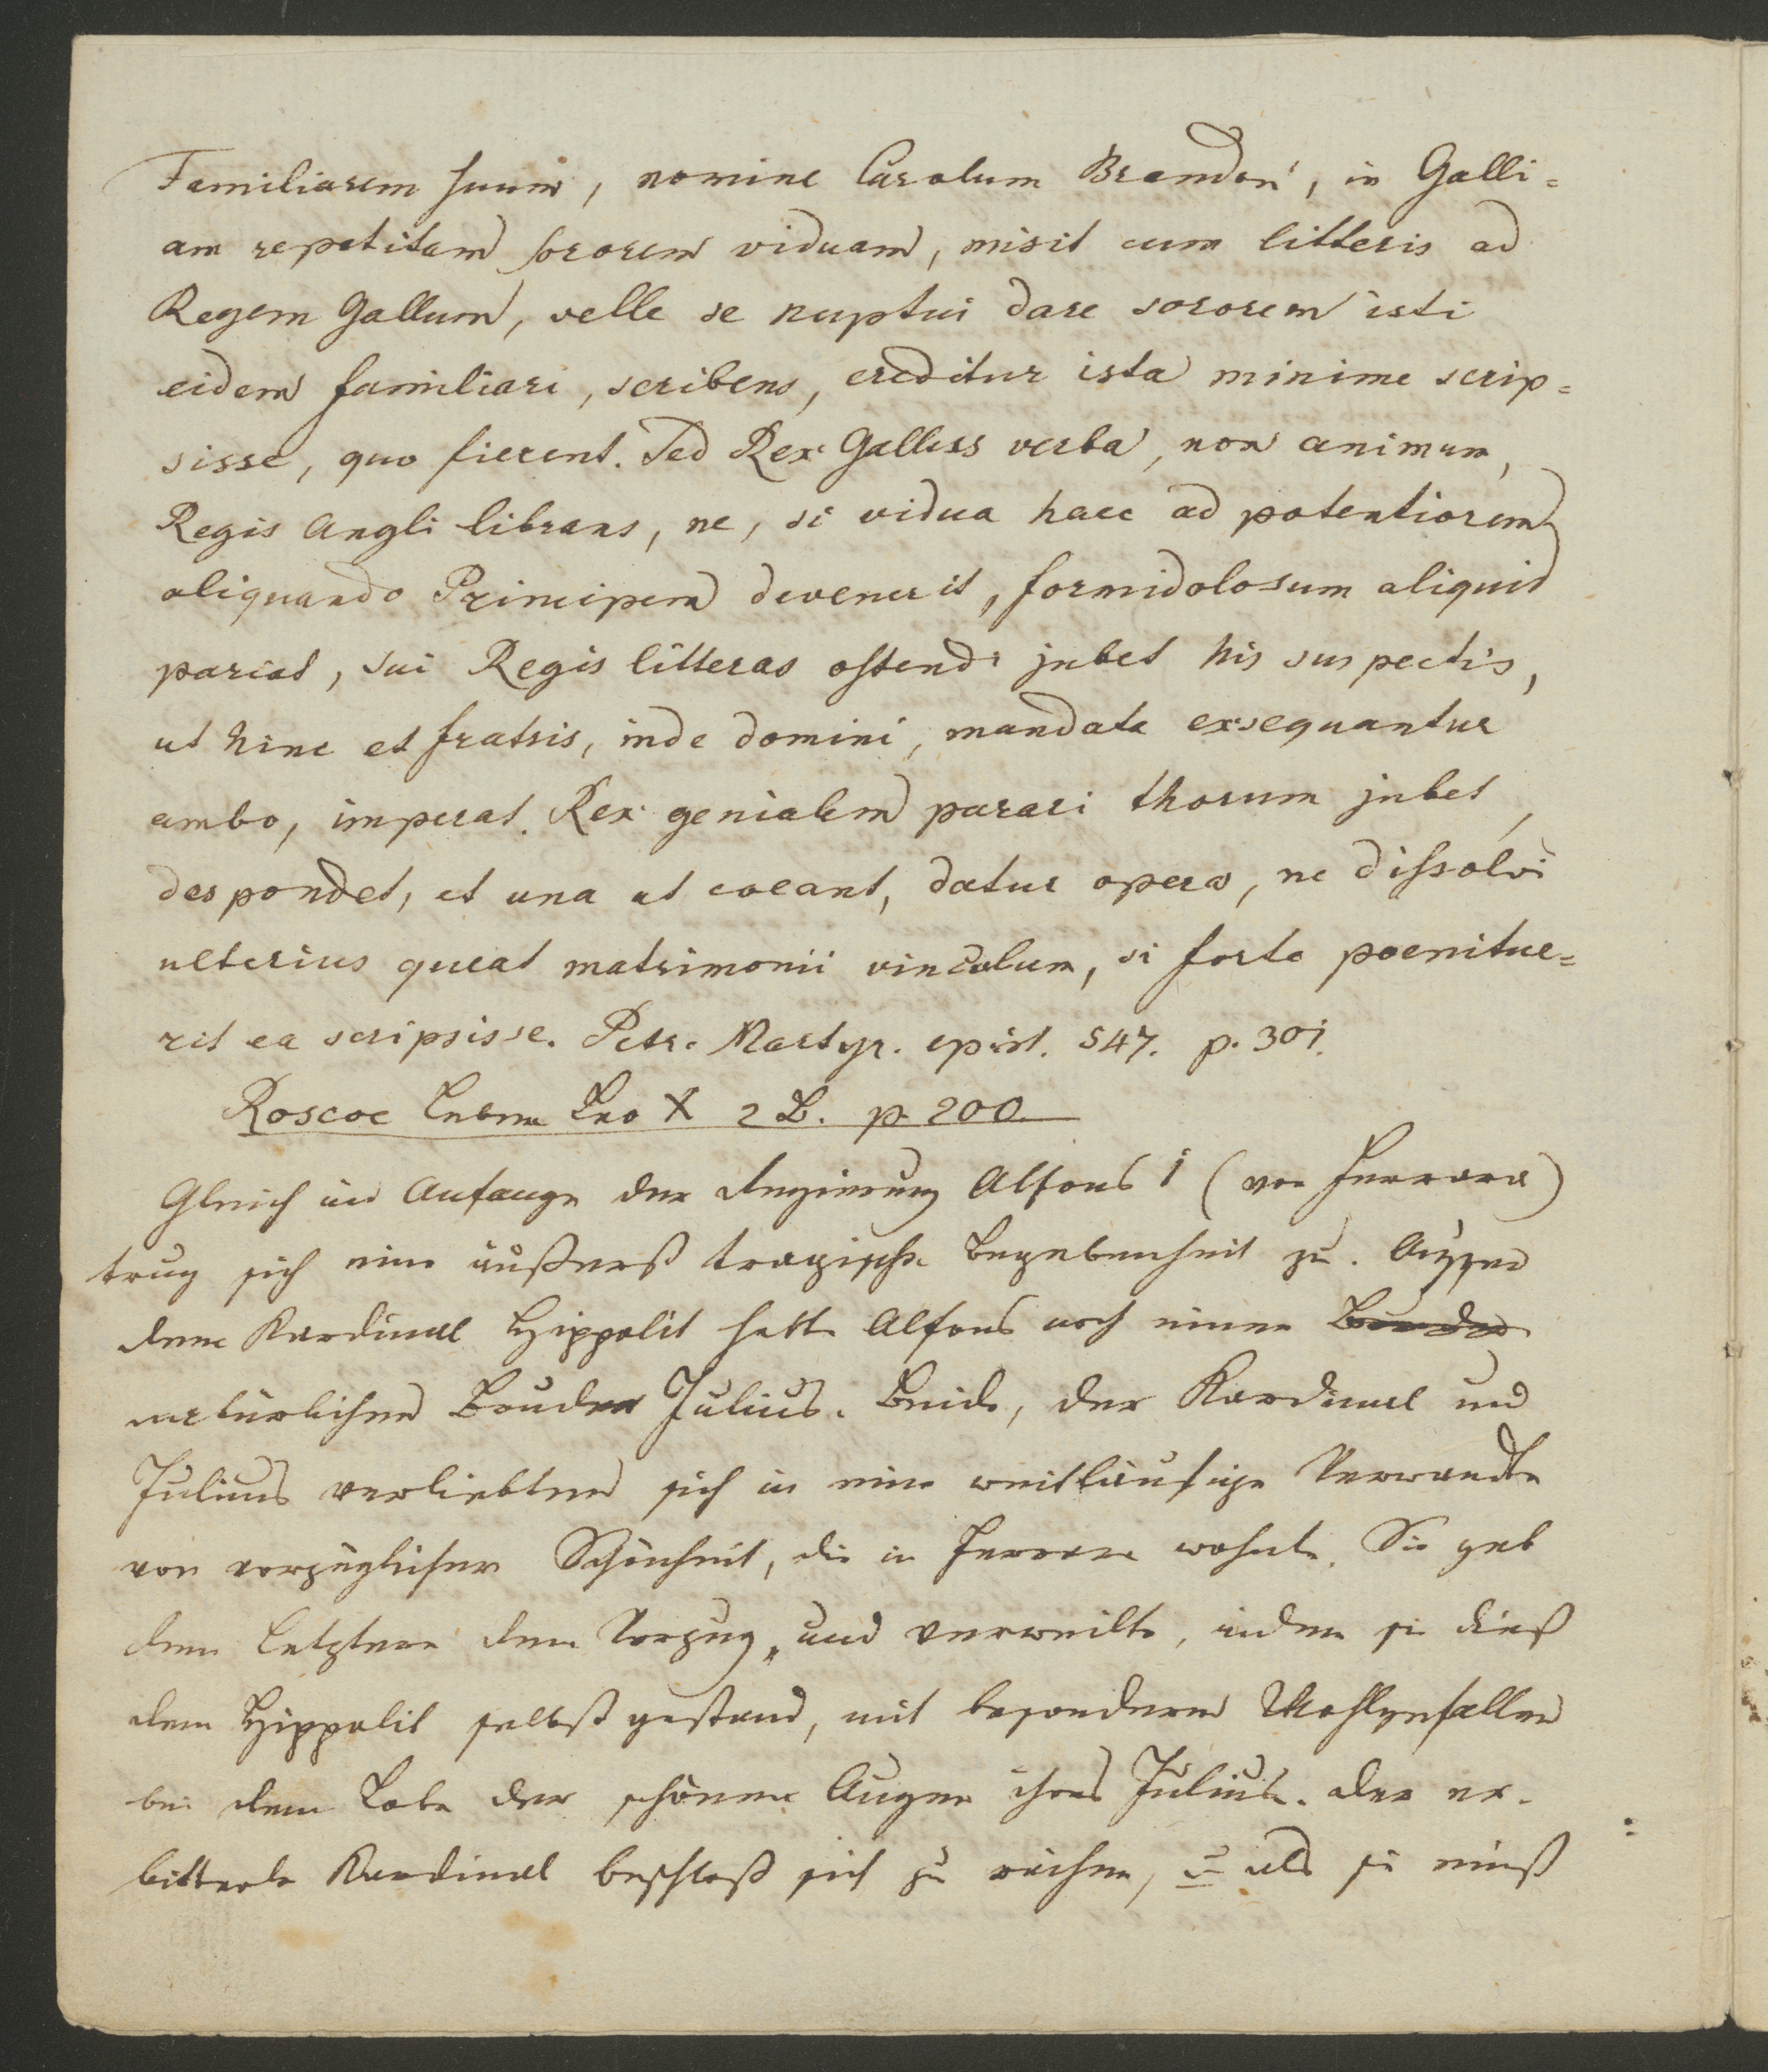 Familiarem suum, nomine Carolum Brandon, in Galli=
am repetitam sororem viduam, misit cum litteris ad
Regem Gallum, velle se nuptui dare sororem isti
eidem familiari, scribens, creditur ista minime scrip=
sisse, quo fierent. Sed Rex Gallus verba, non animum,
Regis Angli librans, ne, si vidua haec ad potentiorem
aliquando Principem devenerit, formidolosum aliquid
pariat, sui Regis litteras ostendi jubet his suspectis,
ut hinc et fratris, inde domini, mandata exsequantur
ambo, imperat. Rex genialem parari thorum jubet,
despondet, et una ut coeant, datur opera, ne dissolvi
ulterius queat matrimonii vinculum, si forte poenitue=
rit ea scripsisse. Petr. Martyr. epist. 547. p. 301.
Roscoe Leben Leo X 2 B. p 200
Gleich im Anfange der Regierung Alfons I (von Ferrara)
trug sich eine äußerst tragische Begebenheit zu. Ausser
dem Kardinal Hippolit hatte Alfons noch einen Bruder
natürlichen Bruder Julius. Beide, der Kardinal und
Julius verliebten sich in eine weitläufige Verwandte
von vorzüglicher Schönheit, die in Ferrara wohnte. Sie gab
dem Letztern den Vorzug, und verweilte, indem sie dieß
dem Hippolit selbst gestand, mit besonderm Wohlgefallen
bei dem Lobe der schönen Augen ihres Julius. Der er-
bitterte Kardinal beschloß sich zu rächen, u als sie einst